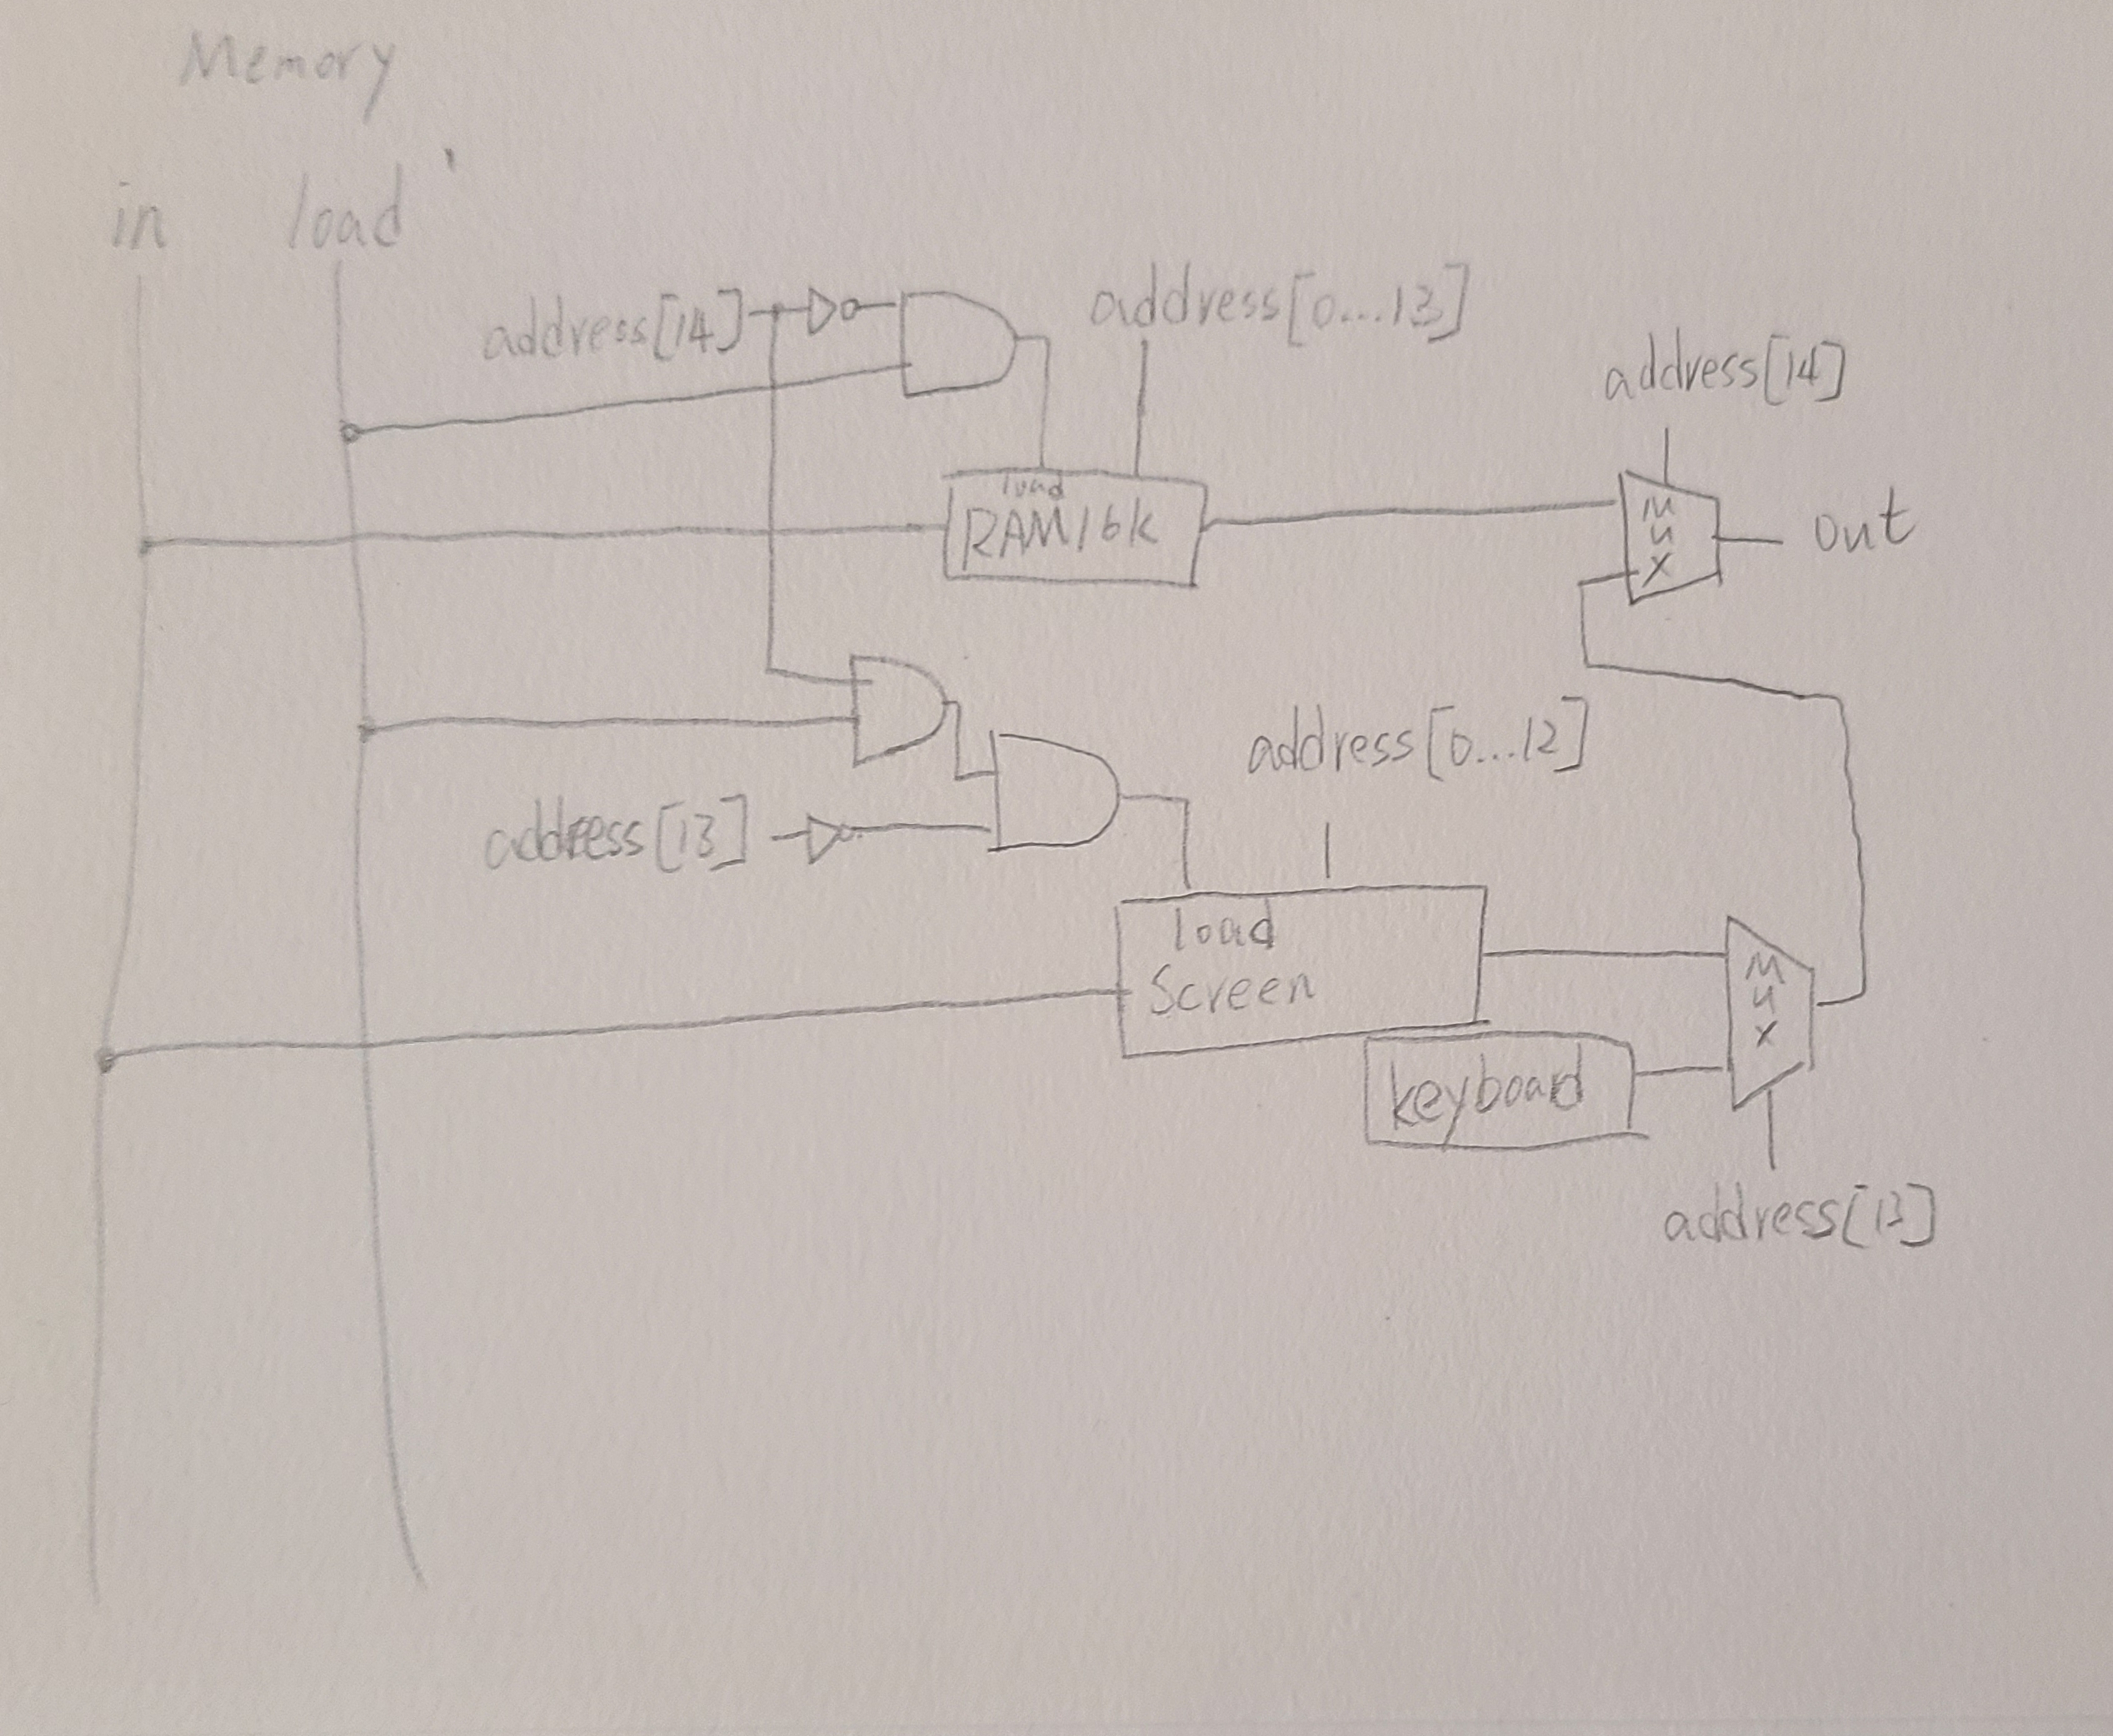 Memory
in load
address[14]
address[0...13]
address[14]
load
RAM16k
Mux
out
address[0...12]
address[13]
load
Screen
Mux
keyboard
address[13]